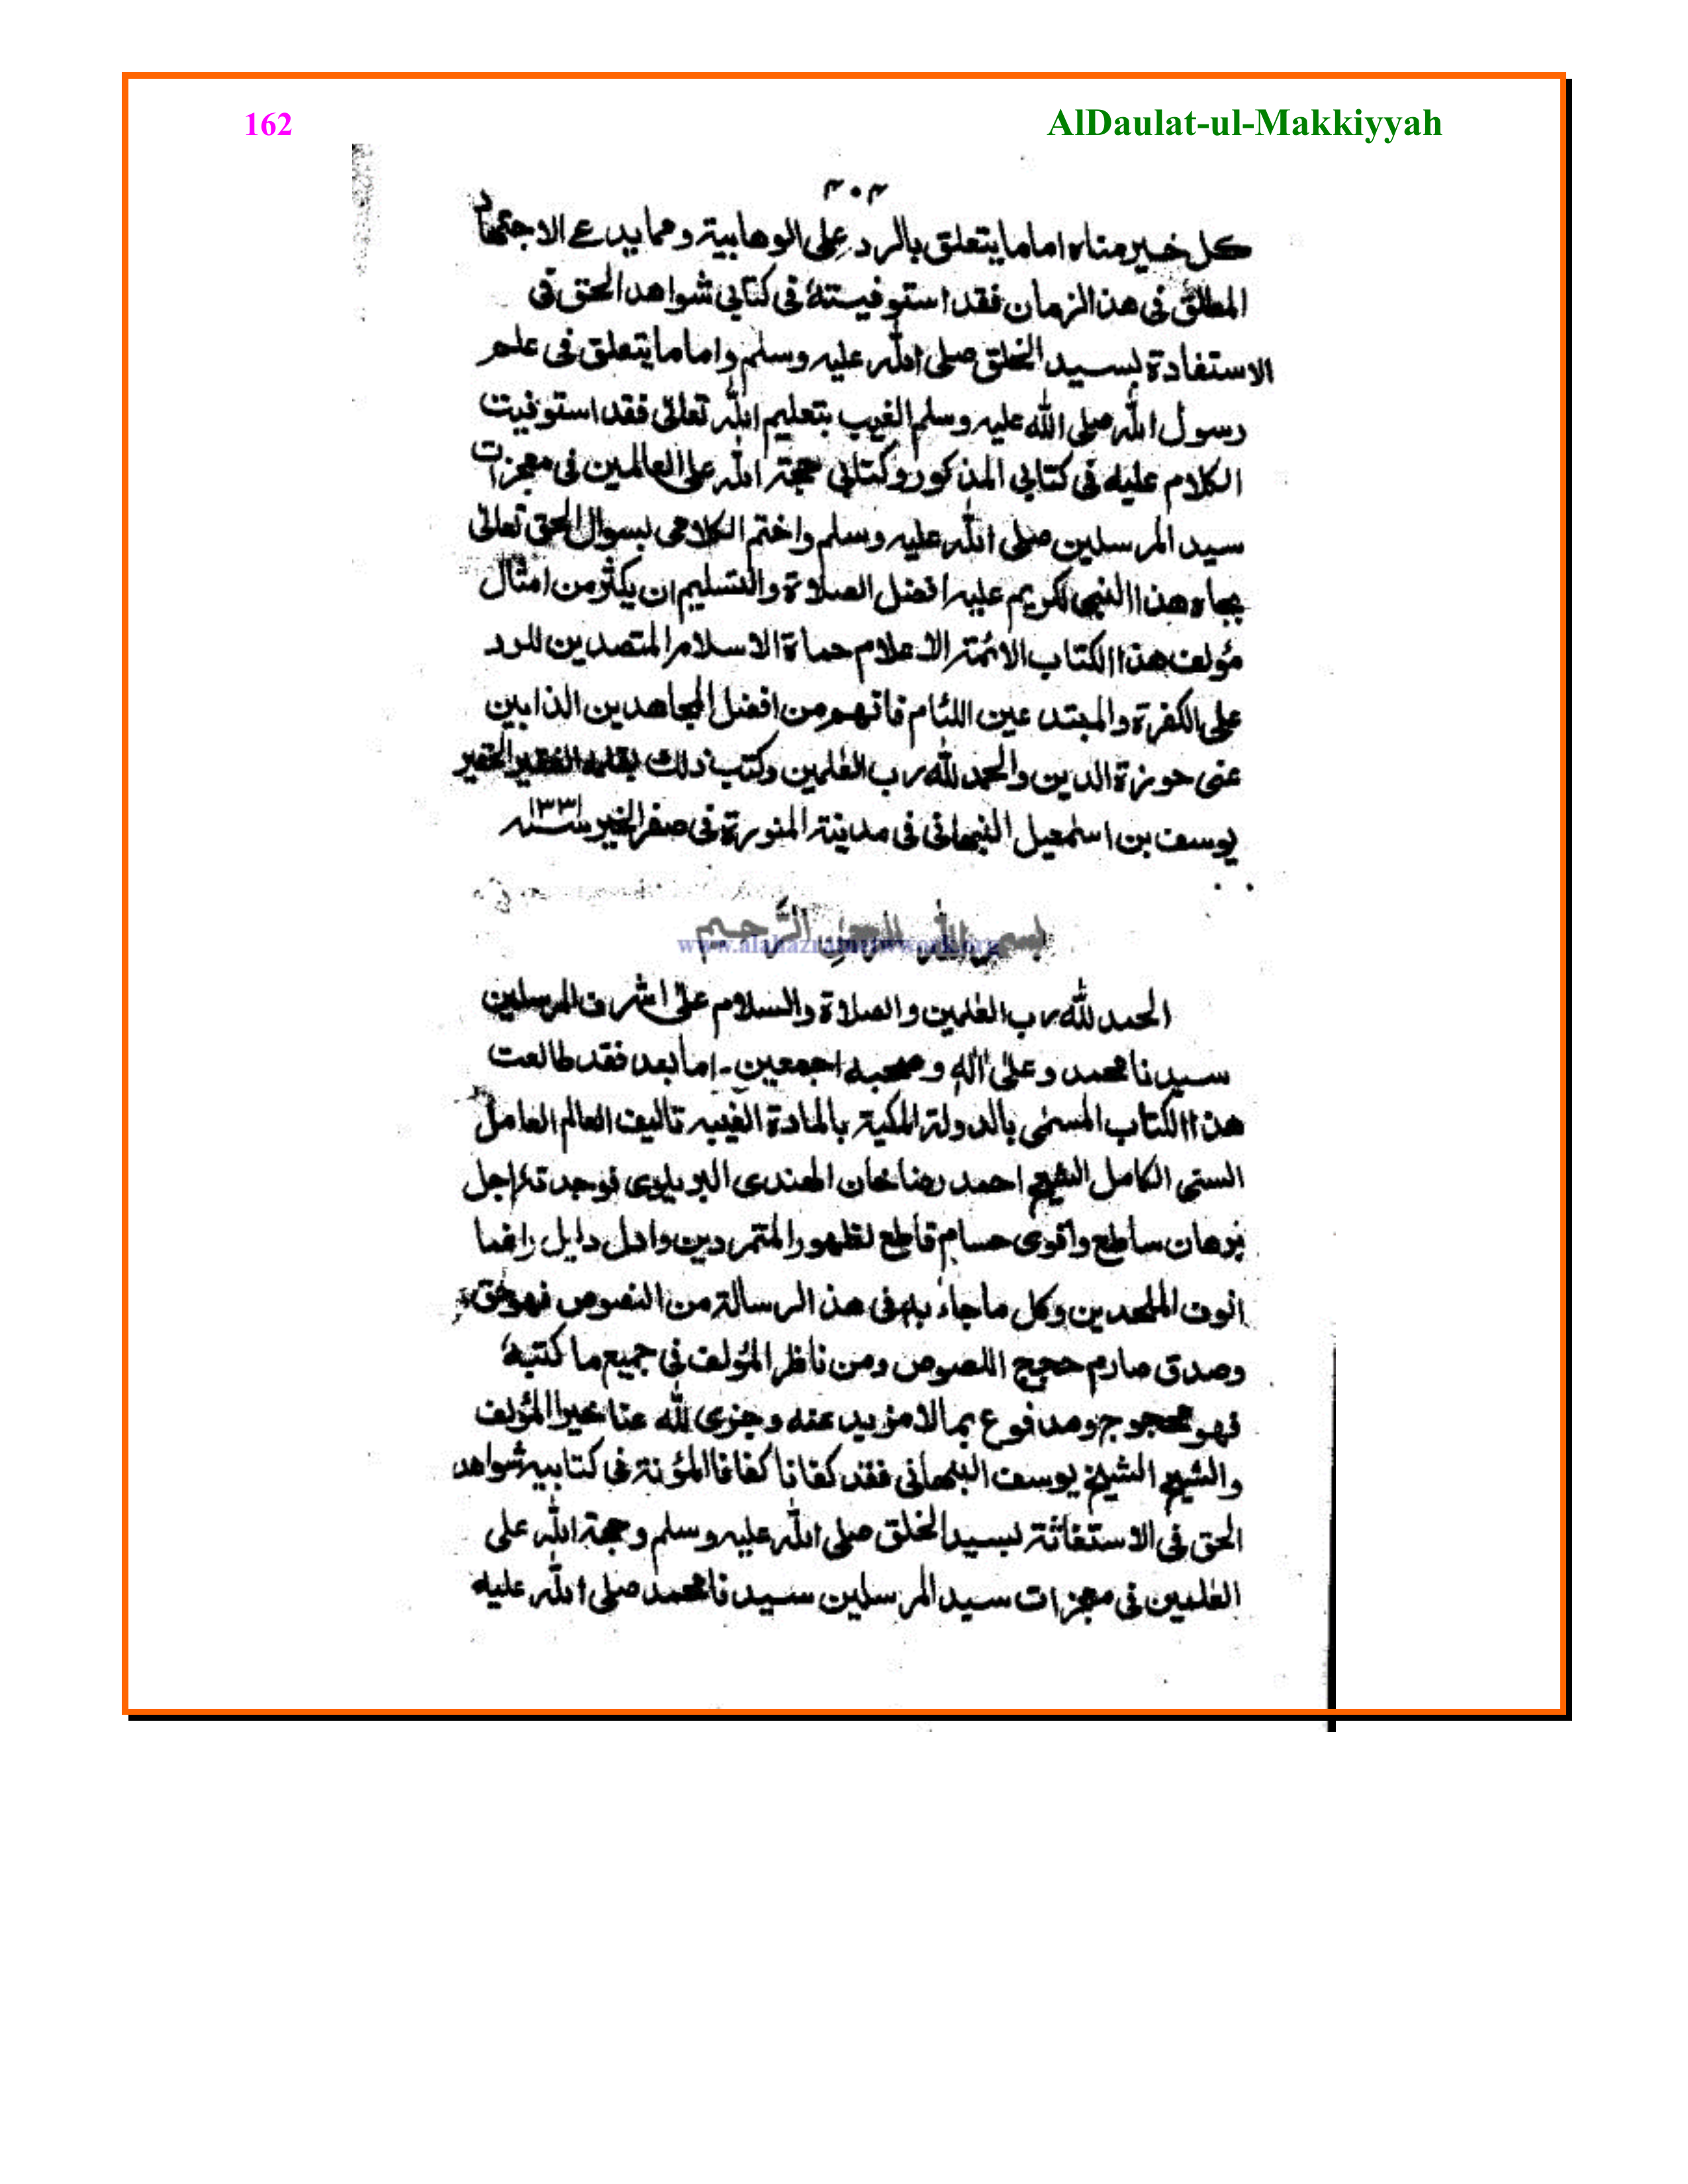 162
AlDaulat-ul-Makkiyyah
٣٠٣
كل خير مناه اما ما يتعلق بالرد على الوهابية ومما يدعى الاجتهاد
المطلق فى هذ الزمان فقد استوفيته فى كتابى شواهد الحق فى
الاستفادة بسيد الخلق صلى الله عليه وسلم واما ما يتعلق فى علم
رسول الله صلى الله عليه وسلم الغيب بتعليم الله تعالىٰ فقد استوفيت
الكلام عليه فى كتابى المذكور وكتابى حجة الله على العالمين فى معجزات
سيد المرسلين صلى الله عليه وسلم واختم الكلامى بسوال الحق تعالىٰ
بجاه هذا النبى لكريم عليه افضل الصلاة والتسليم ان يكثر من امثال
مؤلف هذا الكتاب الائمة الاعلام حماة الاسلام المتصدين للرد
على الكفرة والمبتدعين اللئام فانهم من افضل المجاهدين الذابين
عنى حوزة الدين والحمد لله رب العٰلمين وكتب ذلك بقلمه الفقير الحقير
يوسف بن اسمٰعيل النبهانى فى مدينة المنورة فى صفر الخير سنه ١٣٣١
بسم الله الرحمٰن الرَّحيم
www.alahazratnetwork.org
الحمد لله رب العٰلمين والصلاة والسلام علىٰ اشرف المرسلين
سيدنا محمد وعلىٰ اٰله وصحبه اجمعين ۔ اما بعد فقد طالعت
هذا الكتاب المسمٰى بالدولة المكية بالمادة الغيبيه تاليف العالم العامل
السنى الكامل الشيخ احمد رضا خان الهندى البريلوى فوجدته اجل
برهان ساطع واقوى حسام قاطع لظهور المتمردين وادل دليل راغما
انوف الملحدين وكل ما جاء به فى هذ الرسالة من النصوص فهو حق
وصدق صارم حجج اللصوص ومن ناظر المؤلف فى جميع ما كتبهٗ
فهو محجوج ومدفوع بما لا مزيد عنه وجزى لله عنا خيرا المؤلف
والشيخ الشيخ يوسف النبهانى فقد كفانا كفانا المؤنة فى كتابيه شواهد
الحق فى الاستغاثة بسيد الخلق صلى الله عليه وسلم وحجة الله على
العٰلمين فى معجزات سيد المرسلين سيدنا محمد صلى الله عليه